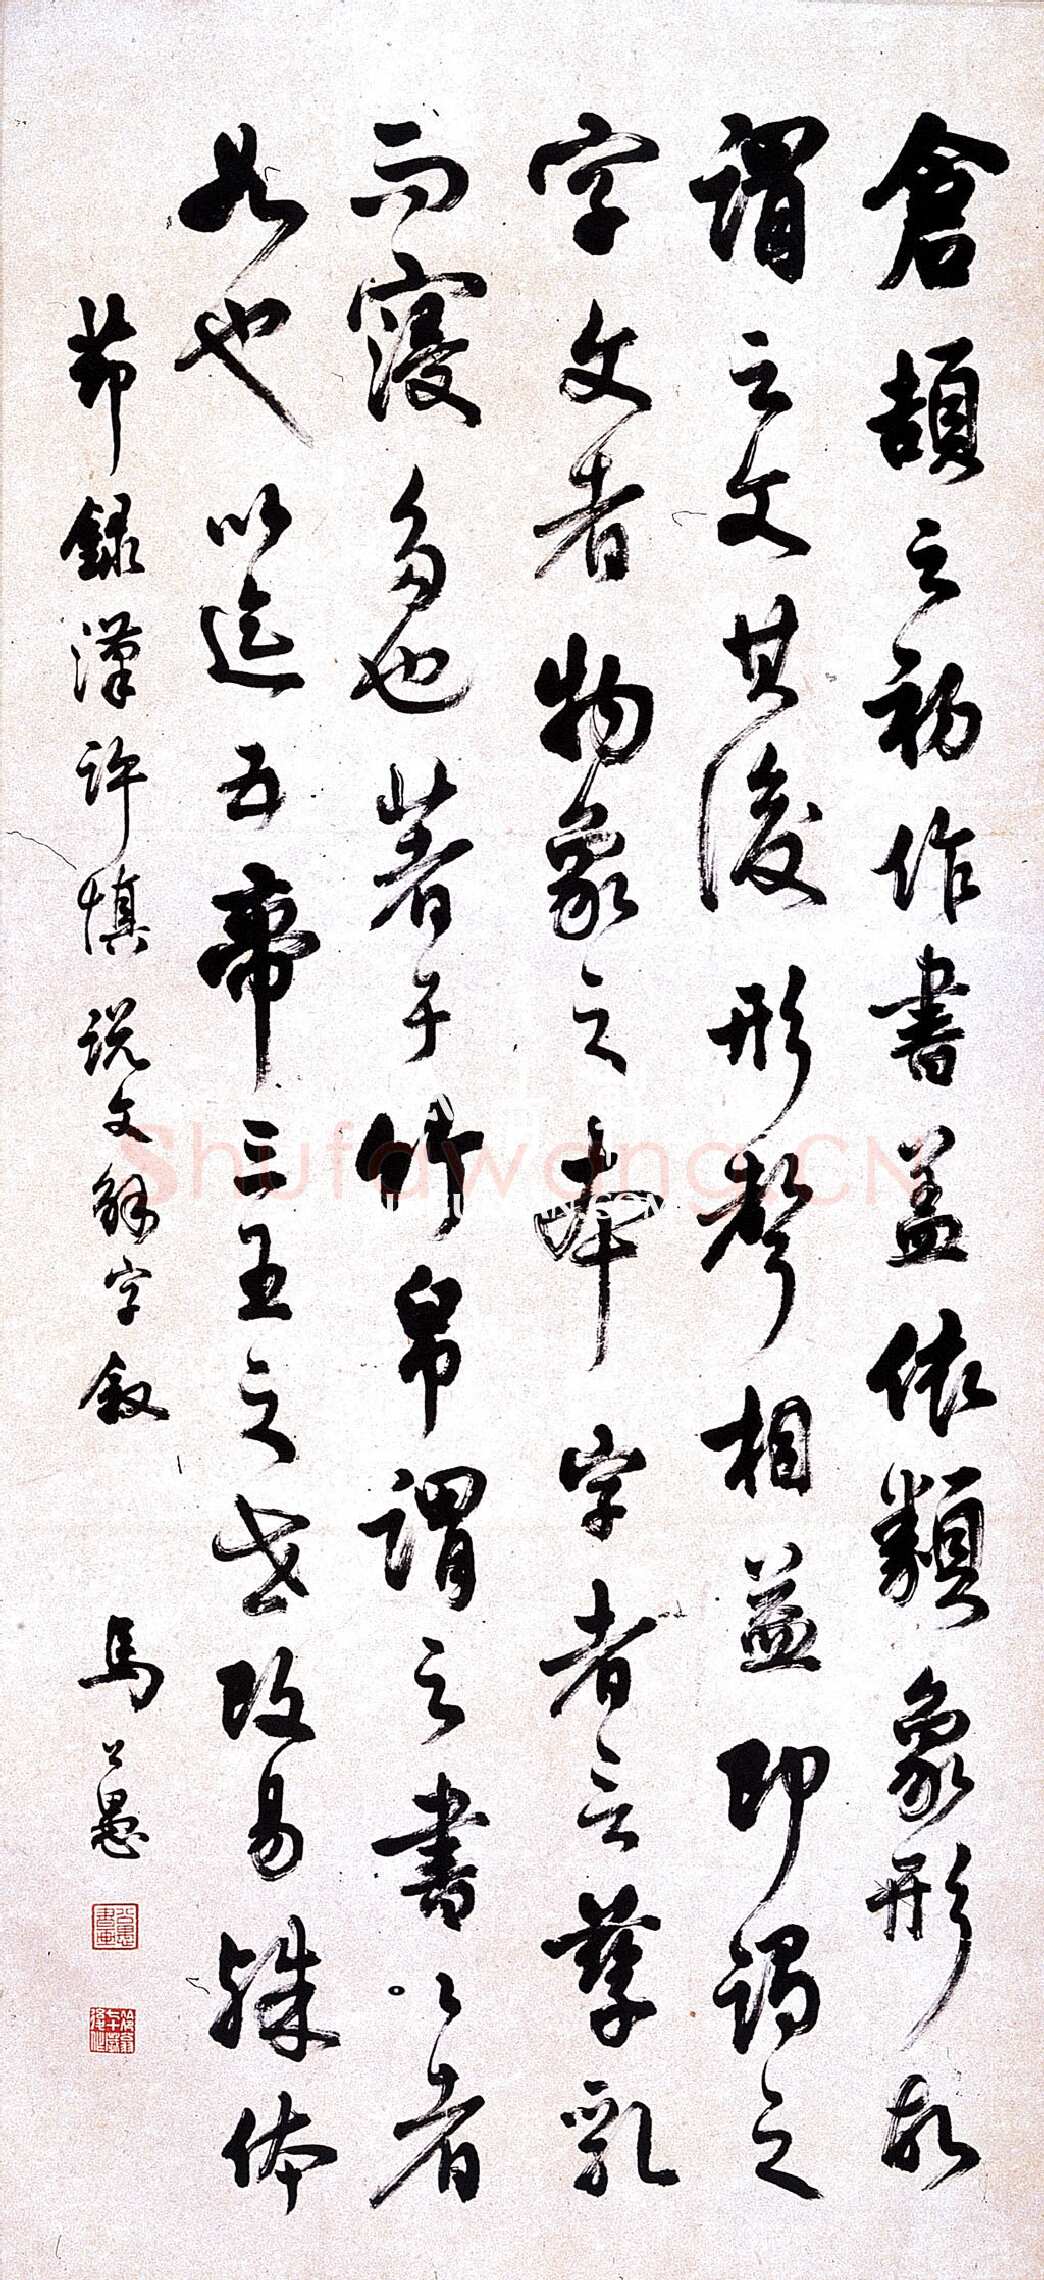 倉頡之初作書蓋依類象形故
謂之文其後形聲相益即謂之
字文者物象之本字者言孳乳
而寖多也著于竹帛謂之書〻者
如也以迄五帝三王之世改易殊体
節錄漢許慎說文解字敘 馬公愚
Shufawang.CN